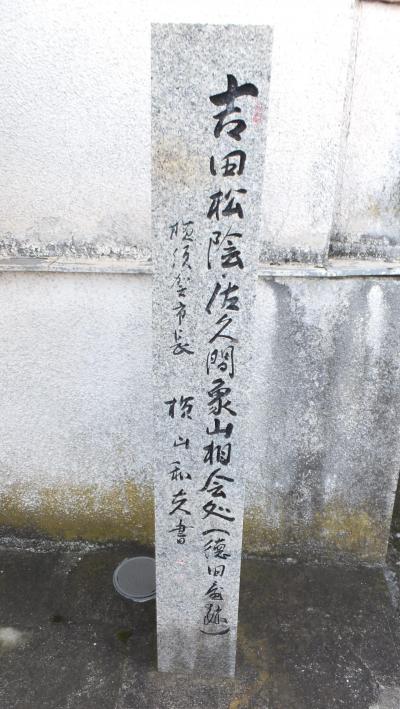 吉田松陰佐久間象山相会処(徳田屋跡)
横須賀市長 横山和夫書